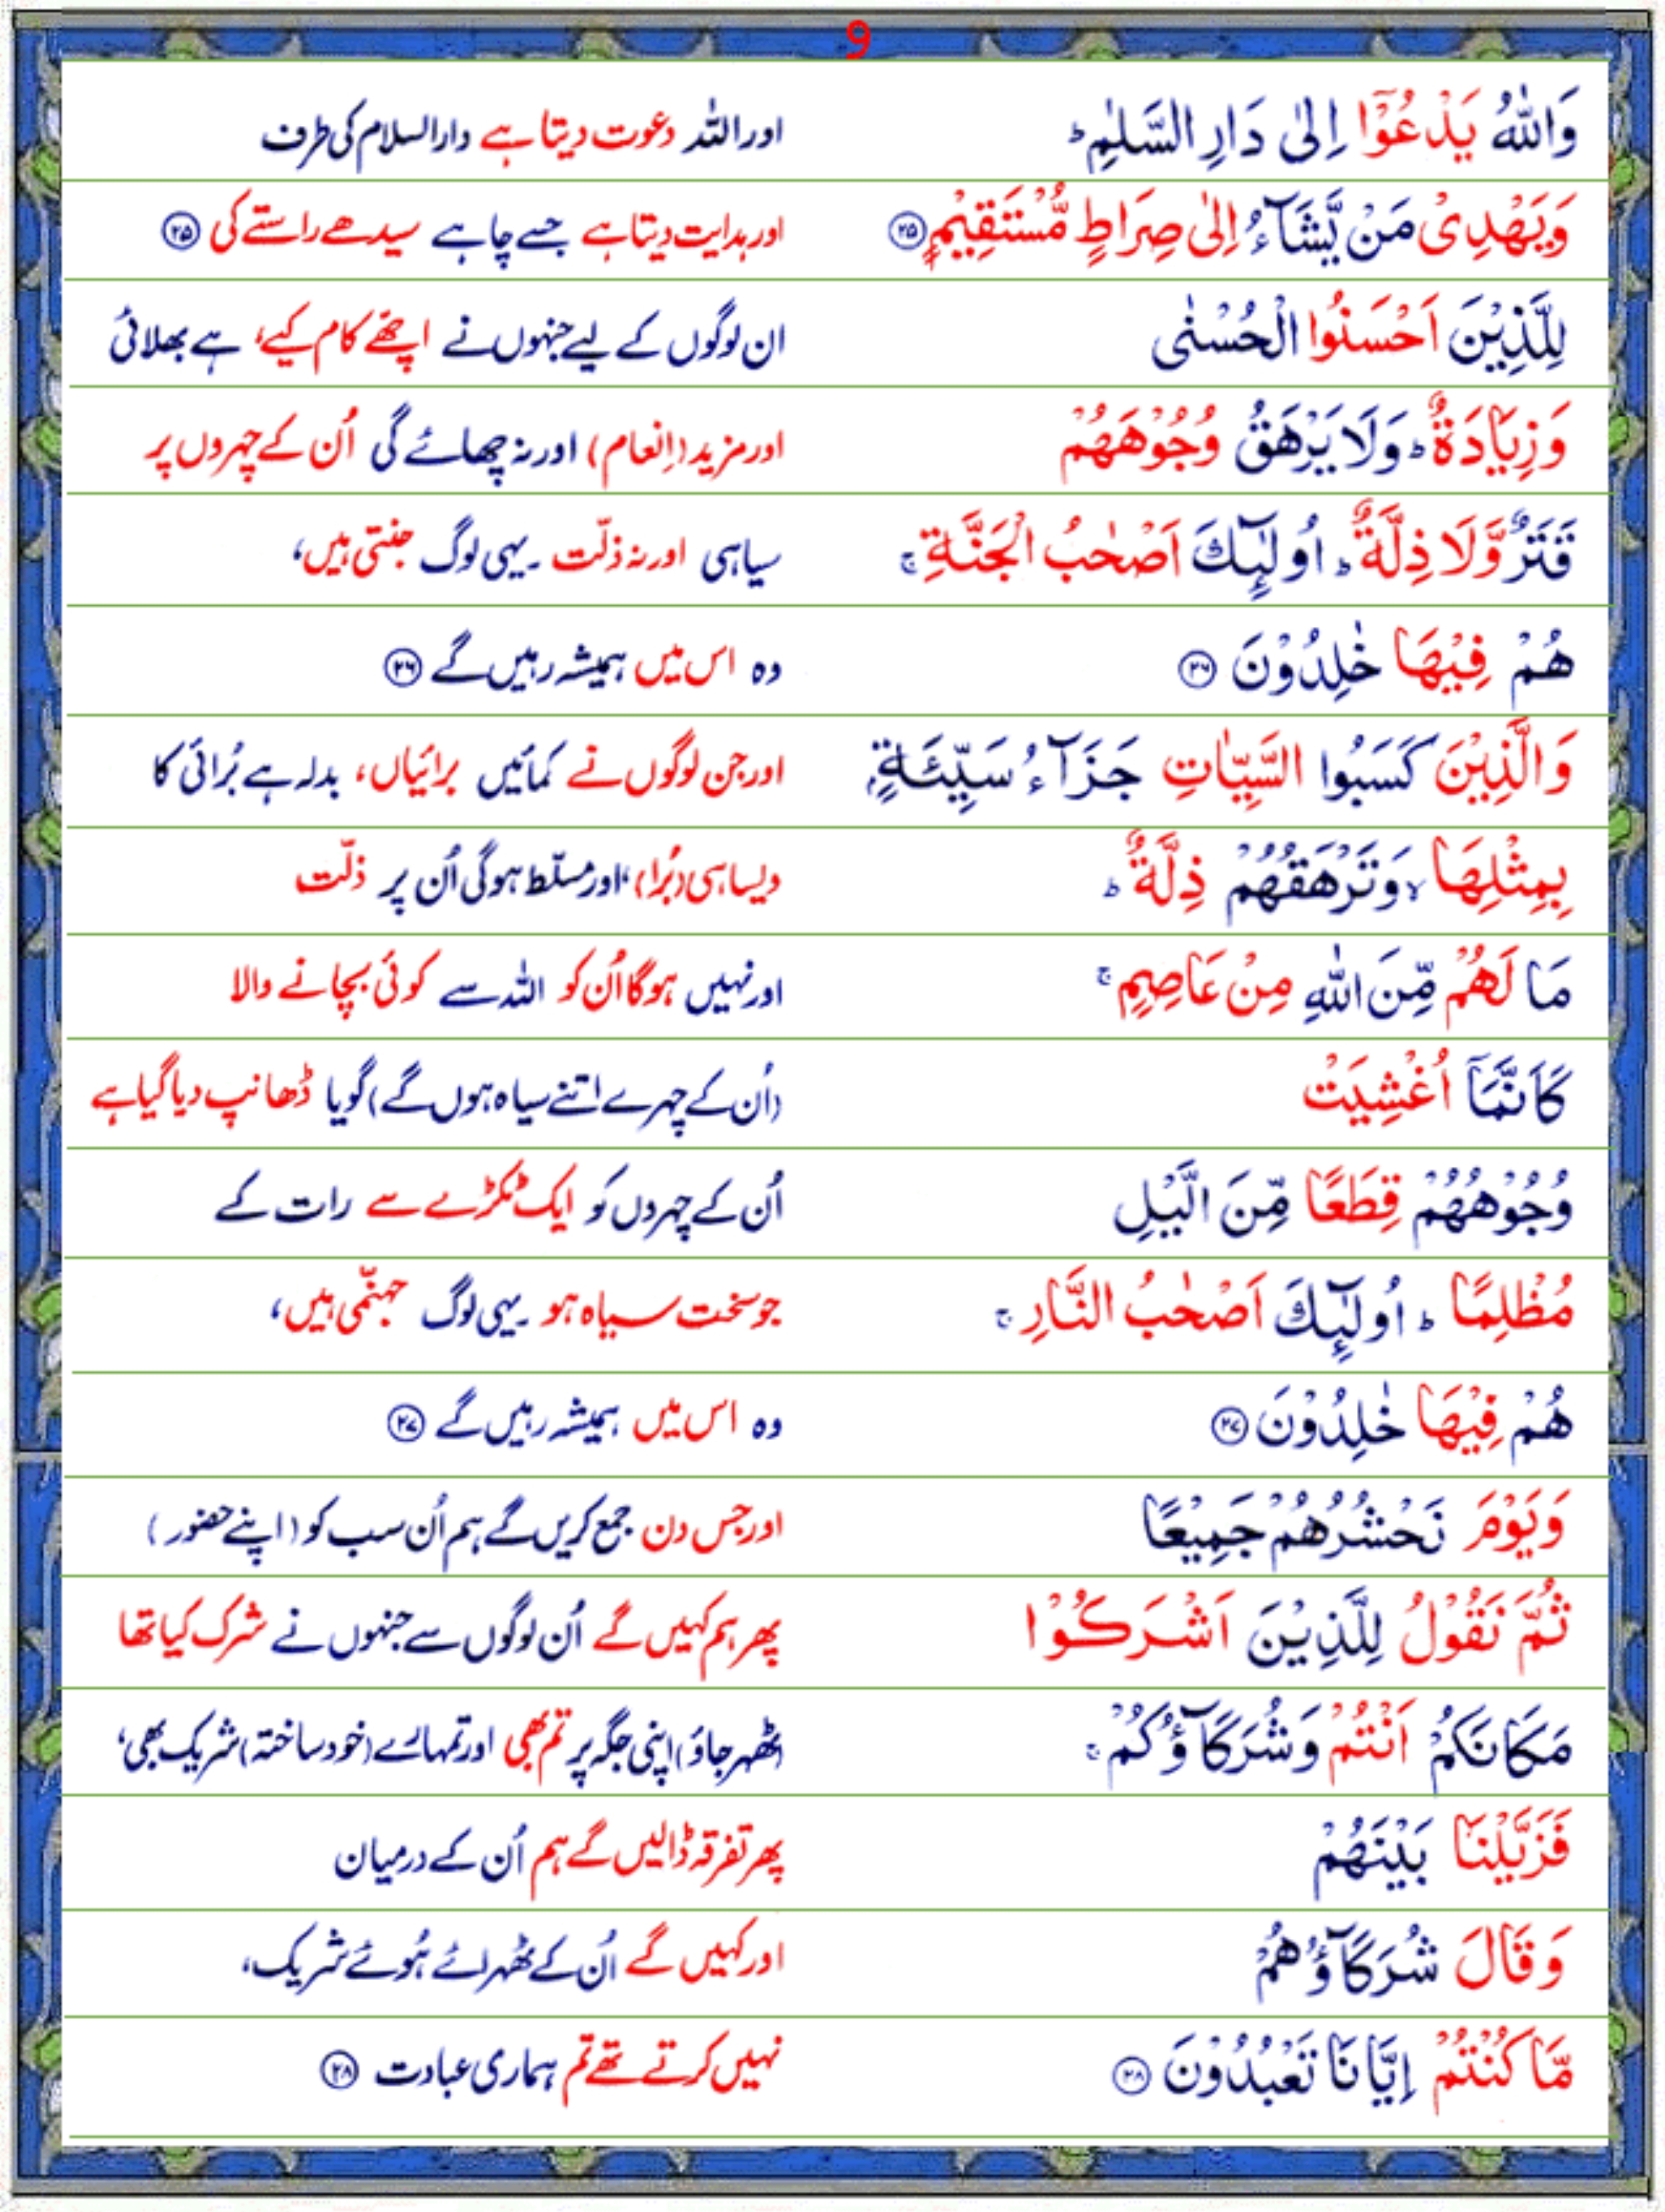 9
وَاللّٰهُ يَدْعُوْٓا اِلٰى دَارِ السَّلٰمِ ؕ اور اللہ دعوت دیتا ہے دارالسلام کی طرف
وَيَهْدِىْ مَنْ يَّشَآءُ اِلٰى صِرَاطٍ مُّسْتَقِيْمٍ ۲۵ اور ہدایت دیتا ہے جسے چاہے سیدھے راستے کی ۲۵
لِلَّذِيْنَ اَحْسَنُوا الْحُسْنٰى ان لوگوں کے لیے جنہوں نے اچھے کام کیے، ہے بھلائی
وَزِيَادَةٌ ؕ وَلَا يَرْهَقُ وُجُوْهَهُمْ اور مزید (اِنعام) اور نہ چھائے گی اُن کے چہروں پر
قَتَرٌ وَّلَا ذِلَّةٌ ؕ اُولٰٓئِكَ اَصْحٰبُ الْجَنَّةِ ۚ سیاہی اور نہ ذلّت ۔ یہی لوگ جنتی ہیں،
هُمْ فِيْهَا خٰلِدُوْنَ ۲۶ وہ اس میں ہمیشہ رہیں گے ۲۶
وَالَّذِيْنَ كَسَبُوا السَّيِّاٰتِ جَزَآءُ سَيِّئَةٍۭ اور جن لوگوں نے کمائیں برائیاں، بدلہ ہے بُرائی کا
بِمِثْلِهَا ۙ وَتَرْهَقُهُمْ ذِلَّةٌ ؕ ویسا ہی (بُرا)، اور مسلّط ہوگی اُن پر ذلّت
مَا لَهُمْ مِّنَ اللّٰهِ مِنْ عَاصِمٍ ۚ اور نہیں ہوگا اُن کو اللہ سے کوئی بچانے والا
كَاَنَّمَاۤ اُغْشِيَتْ (اُن کے چہرے اتنے سیاہ ہوں گے) گویا ڈھانپ دیا گیا ہے
وُجُوْهُهُمْ قِطَعًا مِّنَ الَّيْلِ اُن کے چہروں کو ایک ٹکڑے سے رات کے
مُظْلِمًا ؕ اُولٰٓئِكَ اَصْحٰبُ النَّارِ ۚ جو سخت سیاہ ہو ۔ یہی لوگ جہنّمی ہیں،
هُمْ فِيْهَا خٰلِدُوْنَ ۲۷ وہ اس میں ہمیشہ رہیں گے ۲۷
وَيَوْمَ نَحْشُرُهُمْ جَمِيْعًا اور جس دن جمع کریں گے ہم اُن سب کو (اپنے حضور)
ثُمَّ نَقُوْلُ لِلَّذِيْنَ اَشْرَكُوْا پھر ہم کہیں گے اُن لوگوں سے جنہوں نے شرک کیا تھا
مَكَانَكُمْ اَنْتُمْ وَشُرَكَآؤُكُمْ ۚ (ٹھہر جاؤ) اپنی جگہ پر تم بھی اور تمہارے (خود ساختہ) شریک بھی،
فَزَيَّلْنَا بَيْنَهُمْ پھر تفرقہ ڈالیں گے ہم اُن کے درمیان
وَقَالَ شُرَكَآؤُهُمْ اور کہیں گے اُن کے ٹھہرائے ہُوئے شریک،
مَّا كُنْتُمْ اِيَّانَا تَعْبُدُوْنَ ۲۸ نہیں کرتے تھے تم ہماری عبادت ۲۸